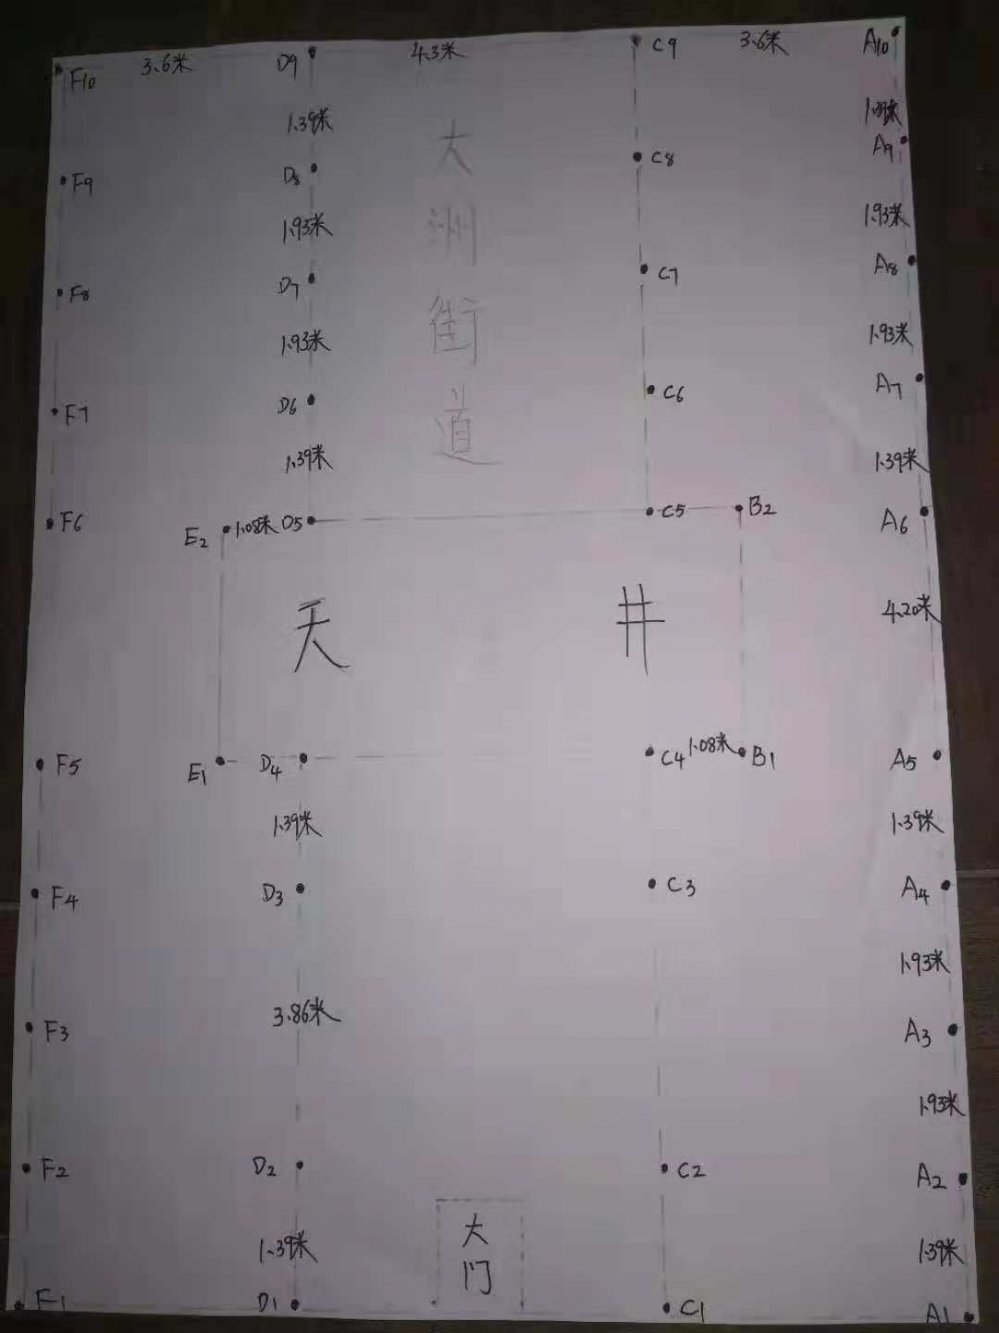 F10 3.6米 D9 4.3米 C9 3.6米 A10
1.39米
A9
F9 D8 1.39米 C8
1.93米 1.93米
F8 D7 C7 A8
1.93米 1.93米
F7 D6 C6 A7
1.39米 1.39米
大
洲
街
道
F6 E2 1.08米 D5 C5 B2 A6
天 井
4.20米
F5 E1 D4 C4 1.08米 B1 A5
1.39米 1.39米
F4 D3 C3 A4
1.93米
F3 3.86米 A3
1.93米
F2 D2 C2 A2
1.39米 1.39米
大
门
F1 D1 C1 A1